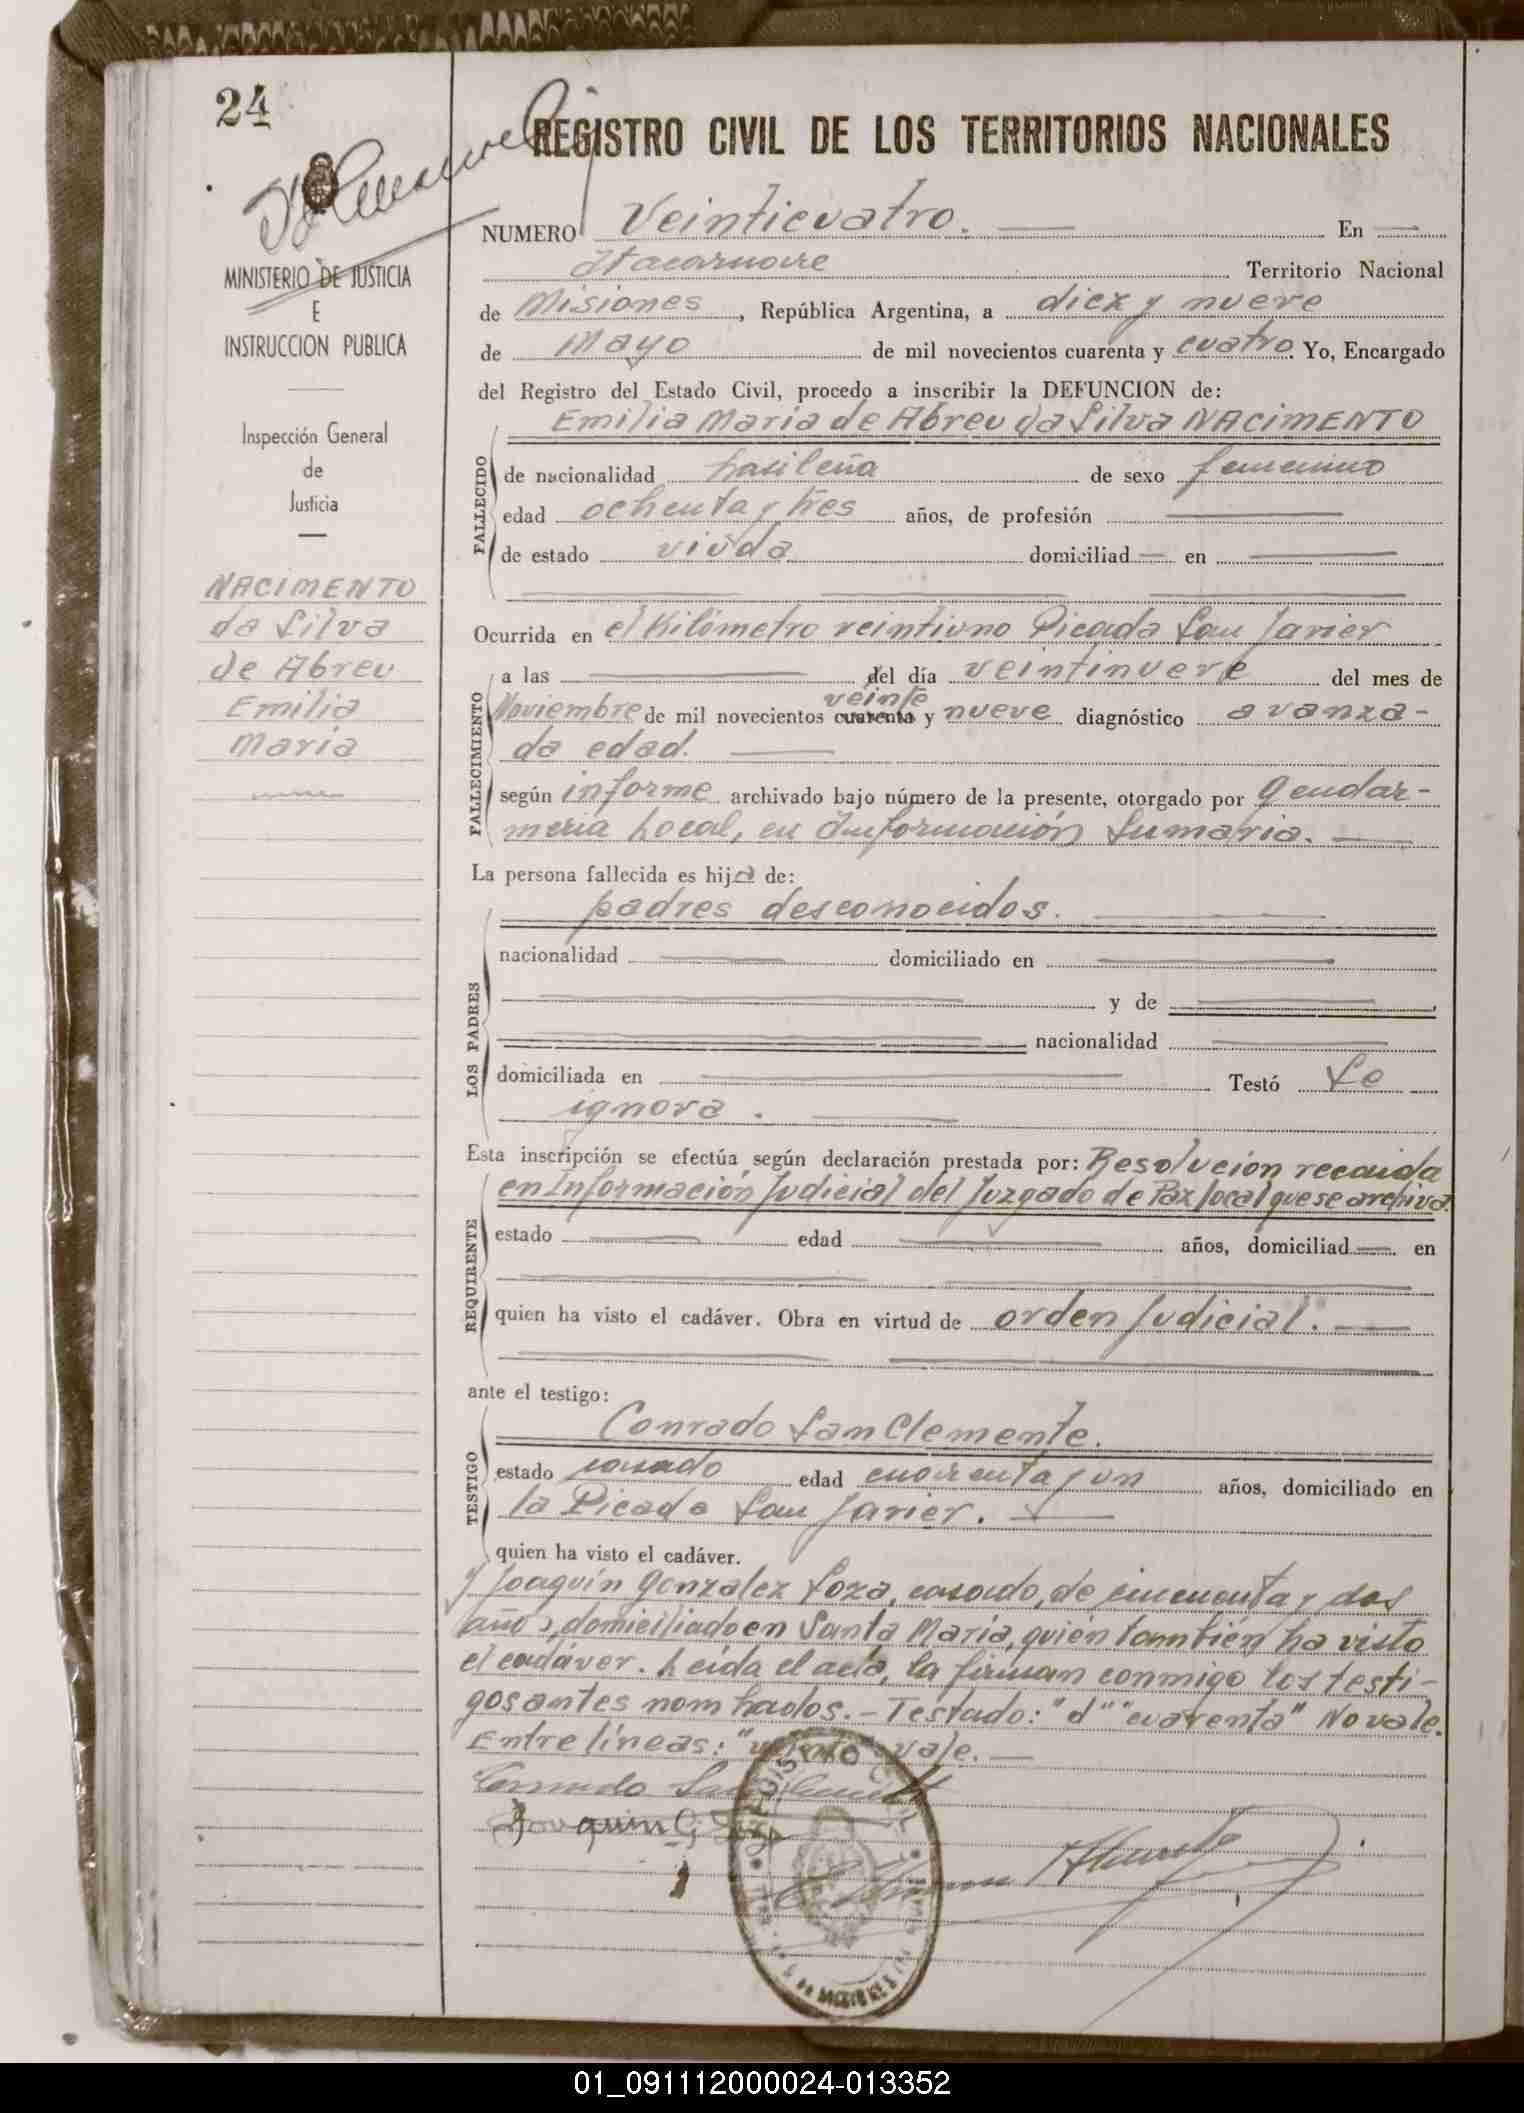 24
REGISTRO CIVIL DE LOS TERRITORIOS NACIONALES
NUMERO Veinticuatro. En
Itacaruare Territorio Nacional
de Misiones, República Argentina, a diez y nueve
de Mayo de mil novecientos cuarenta y cuatro. Yo, Encargado
del Registro del Estado Civil, procedo a inscribir la DEFUNCION de:
Emilia Maria de Abreu da Silva NACIMENTO
FALLECIDO
de nacionalidad brasileña de sexo femenino
edad ochenta y tres años, de profesión
de estado viuda domiciliad en
Ocurrida en el Kilómetro veintiuno Picada San Javier
FALLECIMIENTO
a las del día veintinueve del mes de
veinte
Noviembre de mil novecientos cuarenta y nueve diagnóstico avanza-
da edad.
según informe archivado bajo número de la presente, otorgado por Gendar-
mería local, en Información Sumaria.
La persona fallecida es hija de:
LOS PADRES
padres desconocidos.
nacionalidad domiciliado en
y de
nacionalidad
domiciliada en Testó Se
ignora.
Esta inscripción se efectúa según declaración prestada por: Resolución recaida
REQUIRENTE
en Información Judicial del Juzgado de Paz local que se archiva.
estado edad años, domiciliad en
quien ha visto el cadáver. Obra en virtud de orden Judicial.
ante el testigo:
TESTIGO
Conrado San Clemente.
estado casado edad cuarenta y un años, domiciliado en
la Picada San Javier.
quien ha visto el cadáver.
y Joaquín Gonzalez Soza, casado, de cincuenta y dos
años, domiciliado en Santa María, quien tambien ha visto
el cadáver. Leída el acta, la firman conmigo los testi-
gos antes nombrados.- Testado: "d" "cuarenta" No vale.
Entre líneas: "veinte" vale.
Conrado San Clemente
Joaquin G. Soza
REGISTRO
MINISTERIO DE JUSTICIA
E
INSTRUCCION PUBLICA
Inspección General
de
Justicia
NACIMENTO
da Silva
de Abreu
Emilia
Maria
01_091112000024-013352